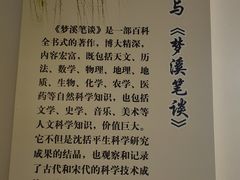 与《梦溪笔谈》
《梦溪笔谈》是一部百科
全书式的著作，博大精深，
内容宏富，既包括天文、历
法、数学、物理、地理、地
质、生物、化学、农学、医
药等自然科学知识，也包括
文学、史学、音乐、美术等
人文科学知识，价值巨大。
它不但是沈括平生科学研究
成果的结晶，也观察和记录
了古代和宋代的科学技术成